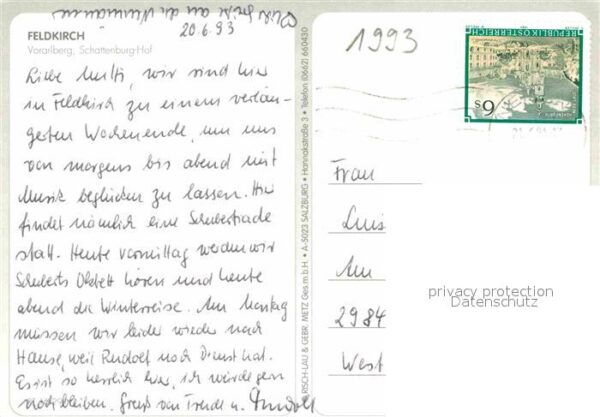 Viele Grüße an die Neumanns
20.6.93
FELDKIRCH
Vorarlberg, Schattenburg-Hof
Liebe Mutti, wir sind hier
in Feldkirch zu einem verlän-
gerten Wochenende, um uns
von morgens bis abend mit
Musik beglücken zu lassen. Hier
findet nämlich eine Schubertiade
statt. Heute vormittag werden wir
Schuberts Oktett hören und heute
abend die Winterreise. Am Montag
müssen wir leider wieder nach
Hause, weil Rudolf noch Dienst hat.
Es ist so herrlich hier, ich würde gern
noch bleiben. Gruß von Traude u. Rudolf
RISCH-LAU & GEBR. METZ Ges.m.b.H. • A-5023 SALZBURG • Hannakstraße 3 • Telefon (0662) 660430
1993
REPUBLIK ÖSTERREICH
S 6
Frau
Luis
Am
2984
West
privacy protection
Datenschutz